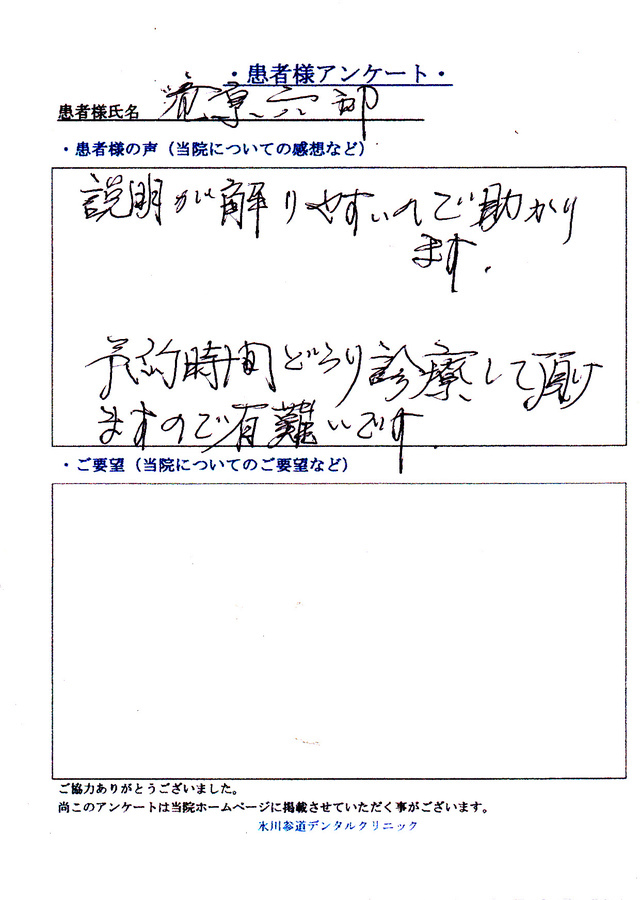 ・患者様アンケート・
患者様氏名
・患者様の声（当院についての感想など）
説明が解りやすいので助かり
ます.
予約時間どうり診療して頂け
ますので有難いです.
・ご要望（当院についてのご要望など）
ご協力ありがとうございました。
尚このアンケートは当院ホームページに掲載させていただく事がございます。
氷川参道デンタルクリニック